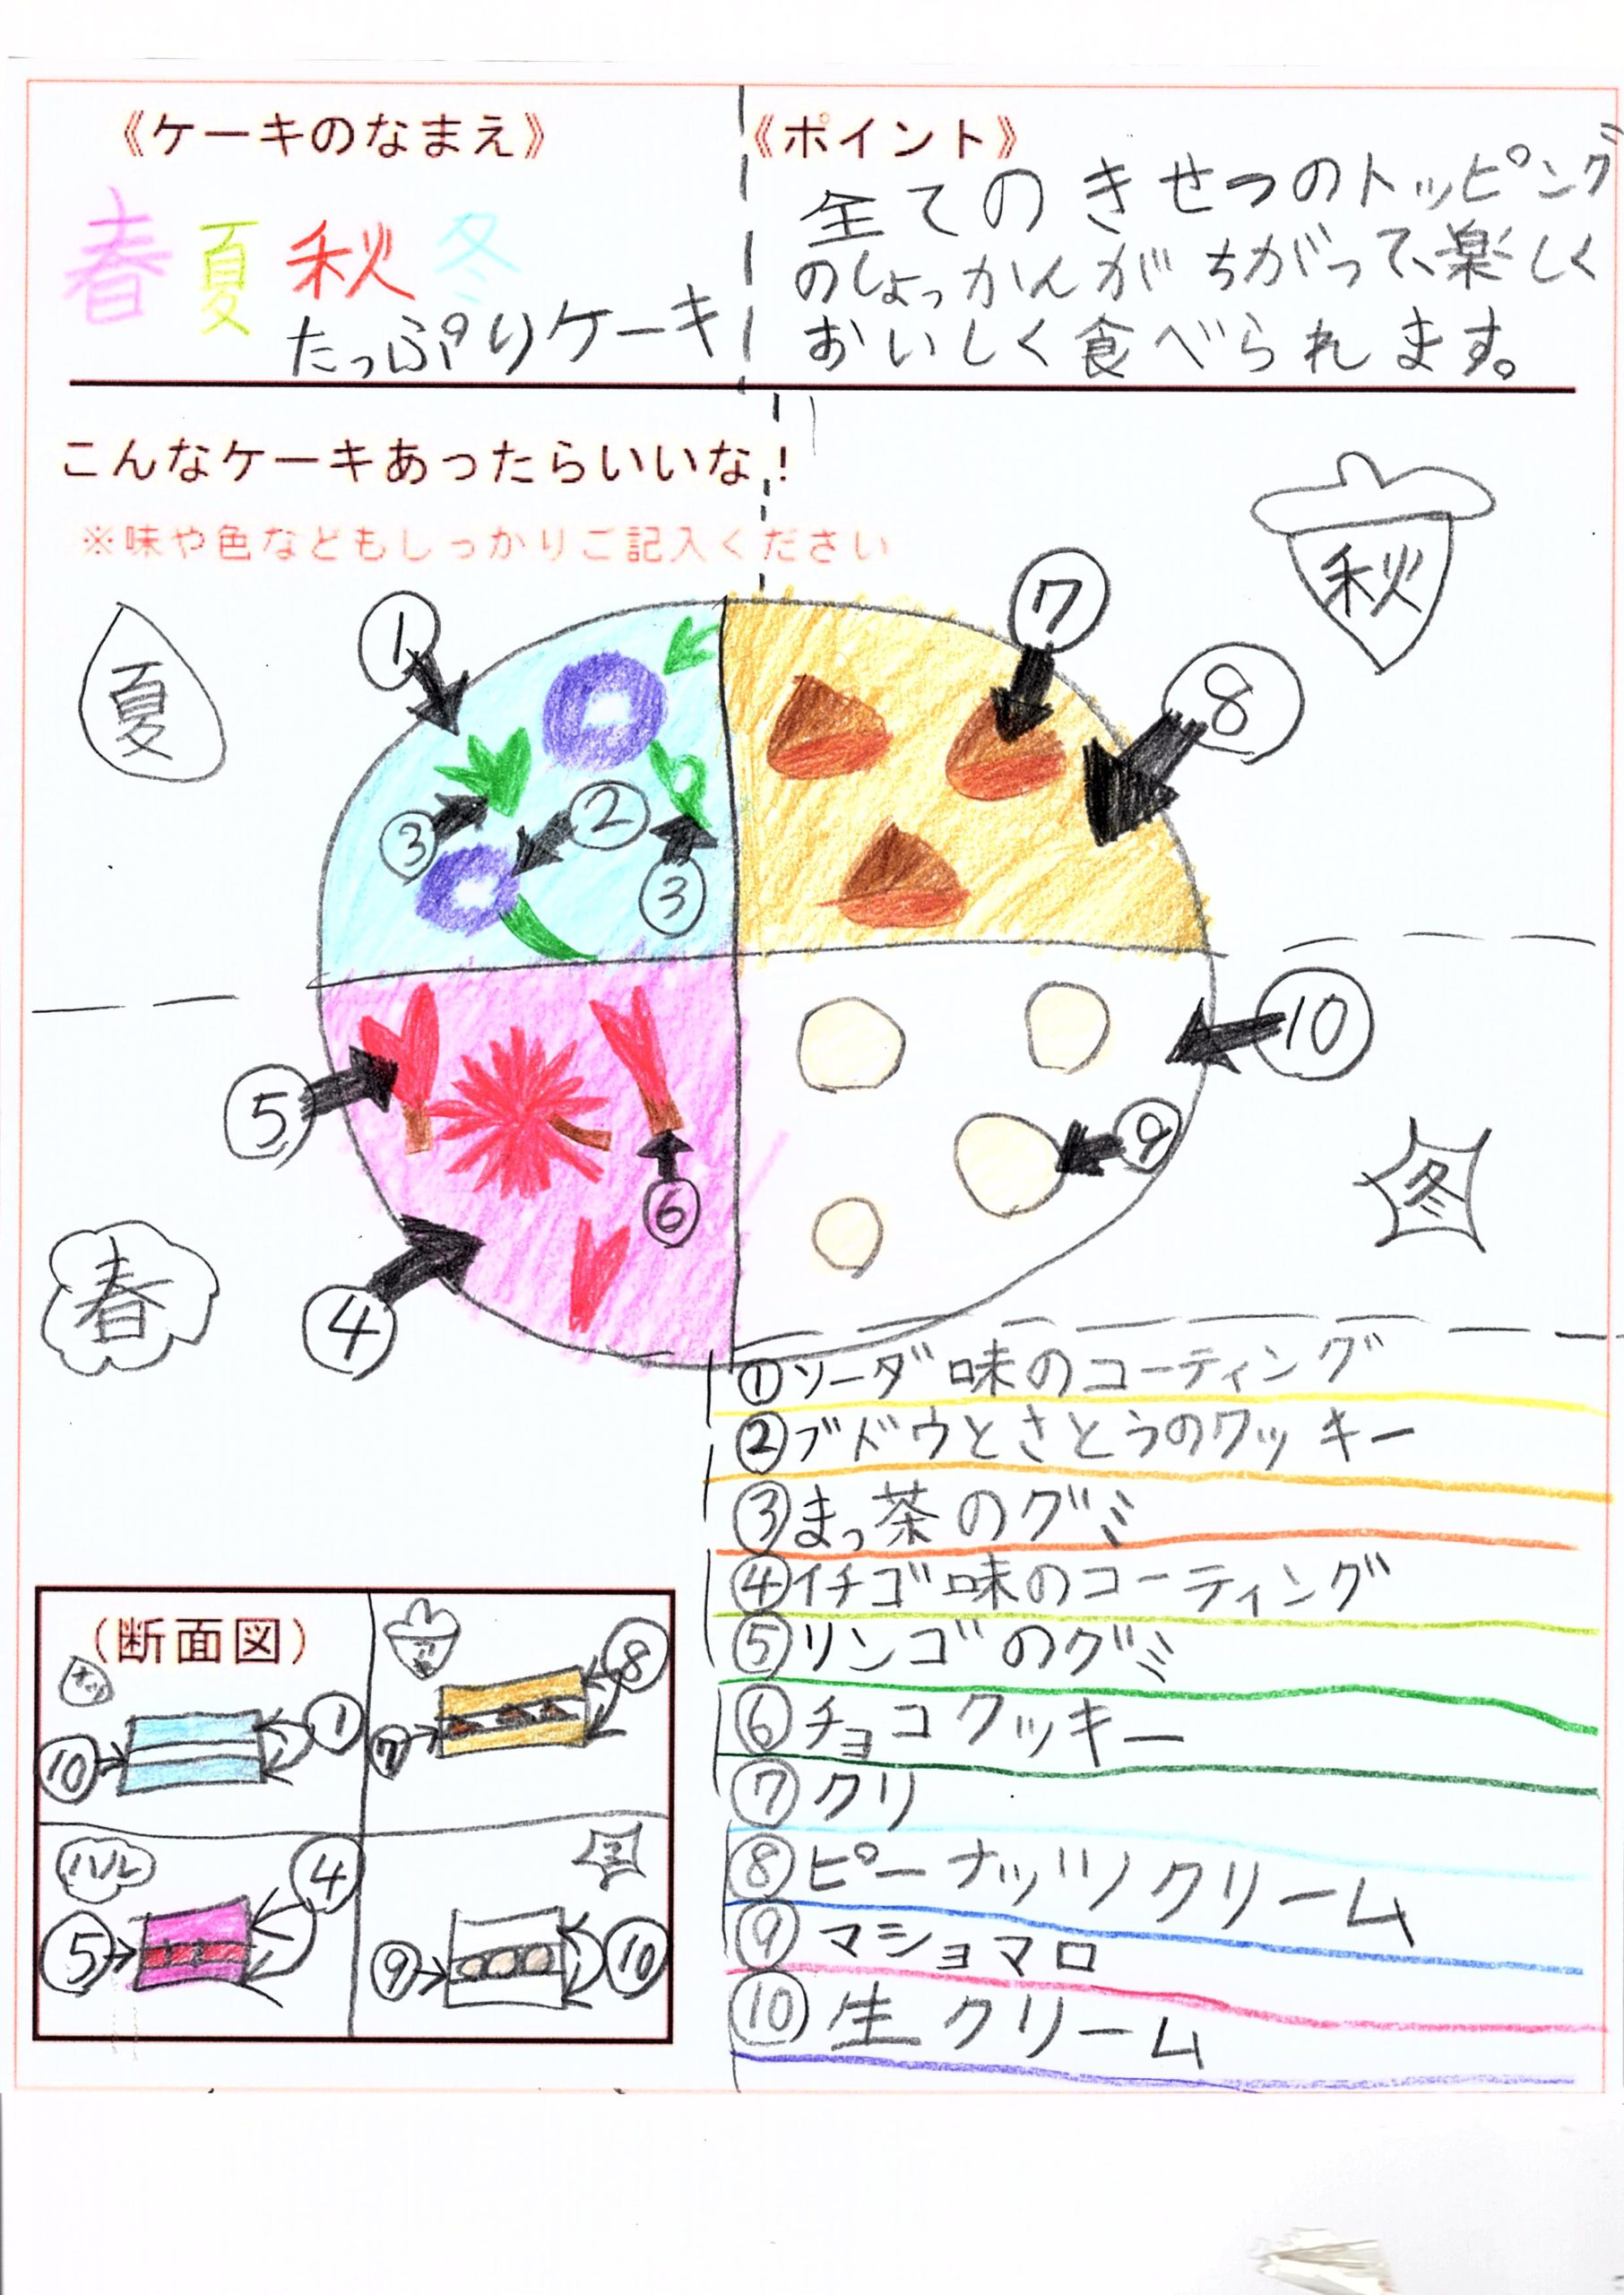 《ケーキのなまえ》
春夏秋冬
たっぷりケーキ
《ポイント》
全てのきせつのトッピング
のしょっかんがちがって、楽しく
おいしく食べられます。
こんなケーキあったらいいな!
※味や色などもしっかりご記入ください
秋
夏
①
⑦
⑧
③
②
③
⑩
⑤
⑨
⑥
冬
春
④
①ソーダ味のコーティング
②ブドウとさとうのクッキー
③まっ茶のグミ
④イチゴ味のコーティング
⑤リンゴのグミ
⑥チョコクッキー
⑦クリ
⑧ピーナッツクリーム
⑨マショマロ
⑩生クリーム
(断面図)
ナツ
①
⑩
⑧
⑦
ハル
④
⑤
⑨
⑩